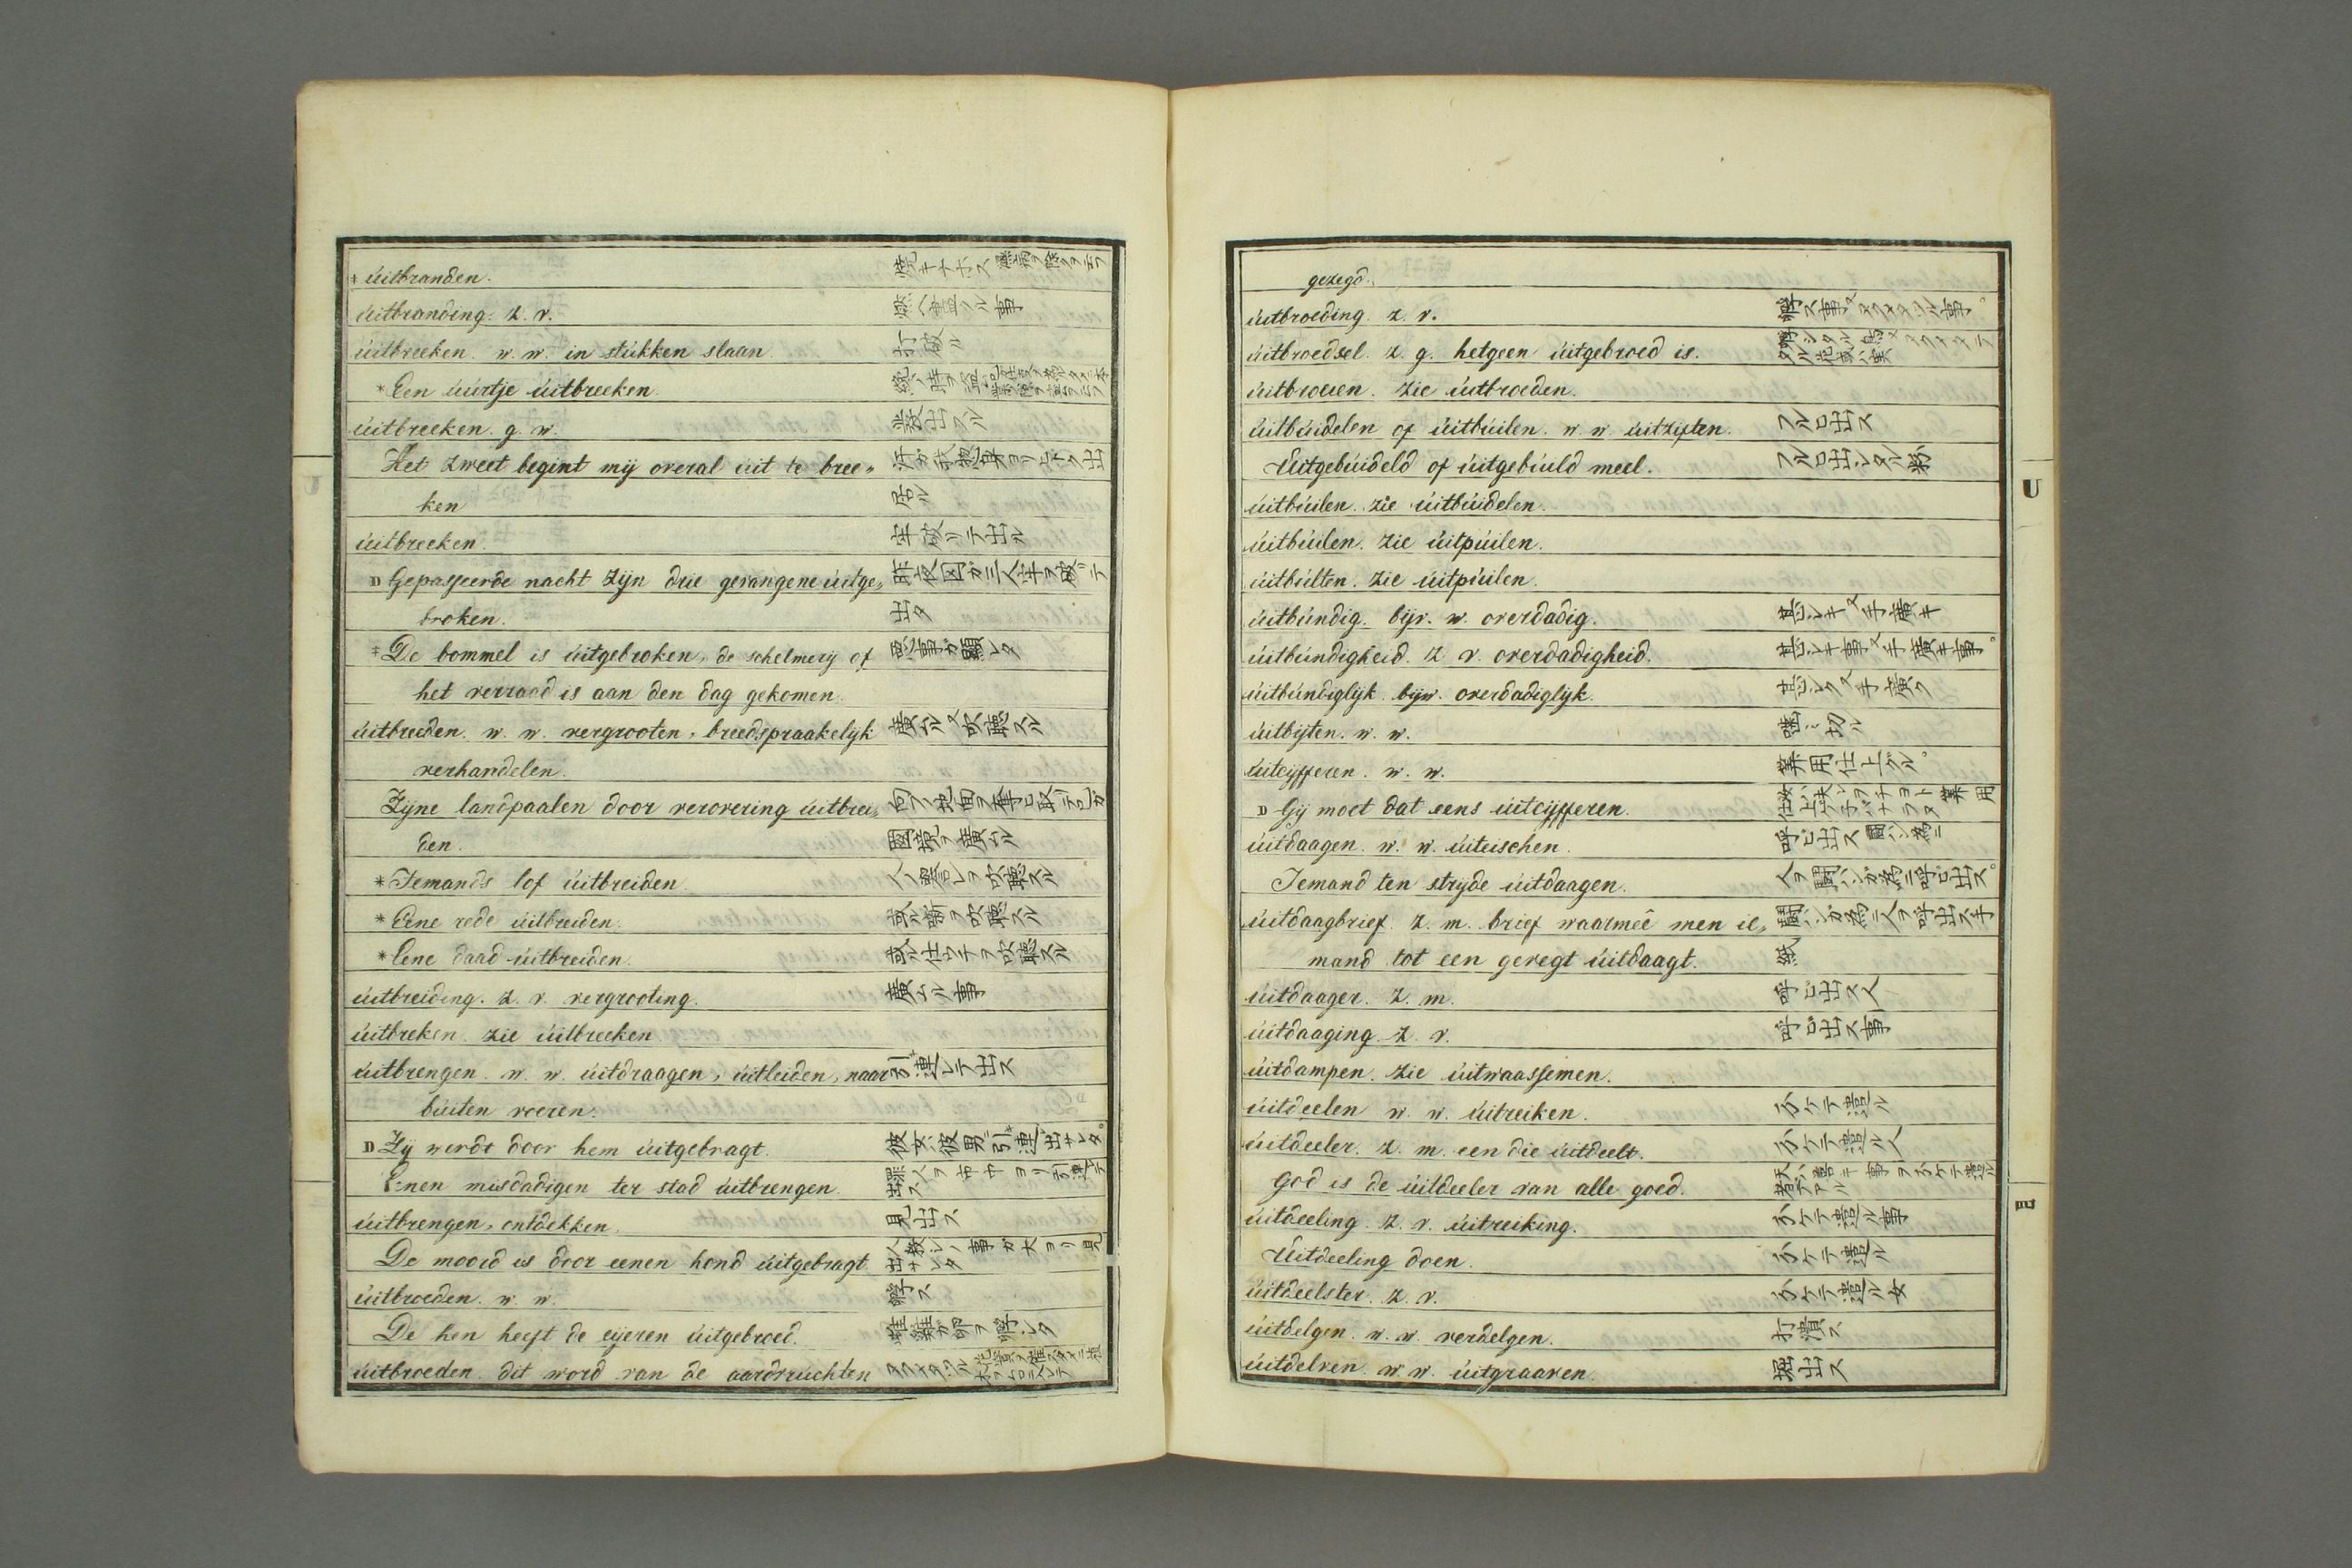 * úitbranden. 焼キナホス
úitbranding. z. v. 燃ヘ盡ル事
úitbreeken. w. w. in stúkken slaan 打破ル
* Een úúrtje úitbreeken.
úitbreeken. g. w. 発出スル
Het zweet begint mij overal úit te bree„ 汗ガ我惣身ヨリ出
ken 居ル
úitbreeken. 牢破リテ出ル
D Gepasseerde nacht zijn drie gevangene úitge„ 昨夜囚ガ三人牢ヲ破リテ
broken. 出タ
* De bommel is úitgebroken, de schelmerij of 悪事ガ顕レタ
het verraad is aan den dag gekomen.
úitbreeden. w. w. vergrooten, breedspraakelijk 廣ムル又吹聴スル
verhandelen.
Zijne landpaalen door verovering úitbrei„
den. 國境ヲ廣ムル
* Iemands lof úitbreiden. 人ノ誉レヲ吹聴スル
* Eene rede úitbreiden. 或ル噺ヲ吹聴スル
* Eene daad úitbreiden. 或ル仕ワザヲ吹聴スル
úitbreiding. z. v. vergrooting. 廣ムル事
úitbreken. zie úitbreeken.
úitbrengen. w. w. úitdraagen, úitleiden, naar 引連レテ出ス
búiten voeren.
D Zij werdt door hem úitgebragt. 彼女ハ彼男ニ引連出サレタ。
Eenen misdadigen ter stad úitbrengen. 罪人ヲ市中ヨリ引連テ出ス
úitbrengen, ontdekken. 見出ス
De moord is door eenen hond úitgebragt. 人殺シノ事ガ犬ヨリ見出サレタ
úitbroeden. w. w. 孵ス
De hen heeft de eijeren úitgebroed. 雌雞ガ卵ヲ孵シタ
úitbroeden. dit word van de aardvrúchten
gezegd.
úitbroeding. z. v. 孵ス事
úitbroedsel. z. g. hetgeen úitgebroed is.
úitbroeien. zie úitbroeden.
úitbúidelen of úitbúilen. w. w. úitziften. フルヒ出ス
Úitgebúideld of úitgebúild meel. フルヒ出シタル粉
úitbúilen. zie úitbúidelen.
úitbúilen. zie úitpúilen.
úitbúlten. zie úitpúilen.
úitbúndig. bijv. w. overdadig. 甚シキ又手廣キ
úitbúndigheid. z. v. overdadigheid. 甚シキ事又手廣キ事。
úitbúndiglijk. bijw. overdadiglijk. 甚シク又手廣ク
úitbijten. w. w. 噬ミ切ル
úitcijfferen. w. w. 算用仕上ゲル。
D Gij moet dat eens úitcijfferen.
úitdaagen. w. w. úiteischen. 呼ビ出ス 闘ハン為ニ
Iemand ten strijde úitdaagen. 人ヲ闘ハンガ為ニ呼ビ出ス。
úitdaagbrief. z. m. brief waarmeê men ie„ 闘ハンガ為ニ人ヲ呼出ス手
mand tot een gevegt úitdaagt. 紙
úitdaager. z. m. 呼ビ出ス人
úitdaaging. z. v. 呼ビ出ス事
úitdampen. zie úitwaassemen.
úitdeelen w. w. úitreiken. 分ケテ遣ル
úitdeeler. z. m. een die úitdeelt. 分ケテ遣ル人
God is de úitdeeler van alle goed. 天ハ善キ事ヲ分ケテ遣ル者デアル
úitdeeling. z. v. úitreiking. 分ケテ遣ル事
Úitdeeling doen. 分ケテ遣ル
úitdeelster. z. v. 分ケテ遣ル女
úitdelgen. w. w. verdelgen. 打潰ス
úitdelven. w. w. úitgraaven. 堀出ス
U